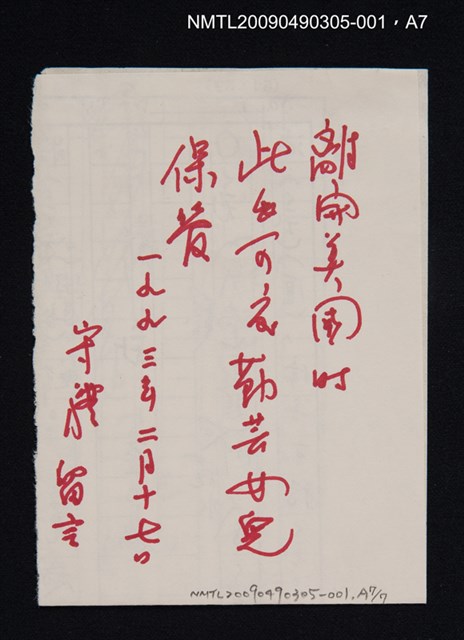 NMTL20090490305-001，A7
離家美國時
此出可交勤芸女兒
保管
一九九三年二月十七日
守禮 留言
NMTL20090490305-001.A7/7